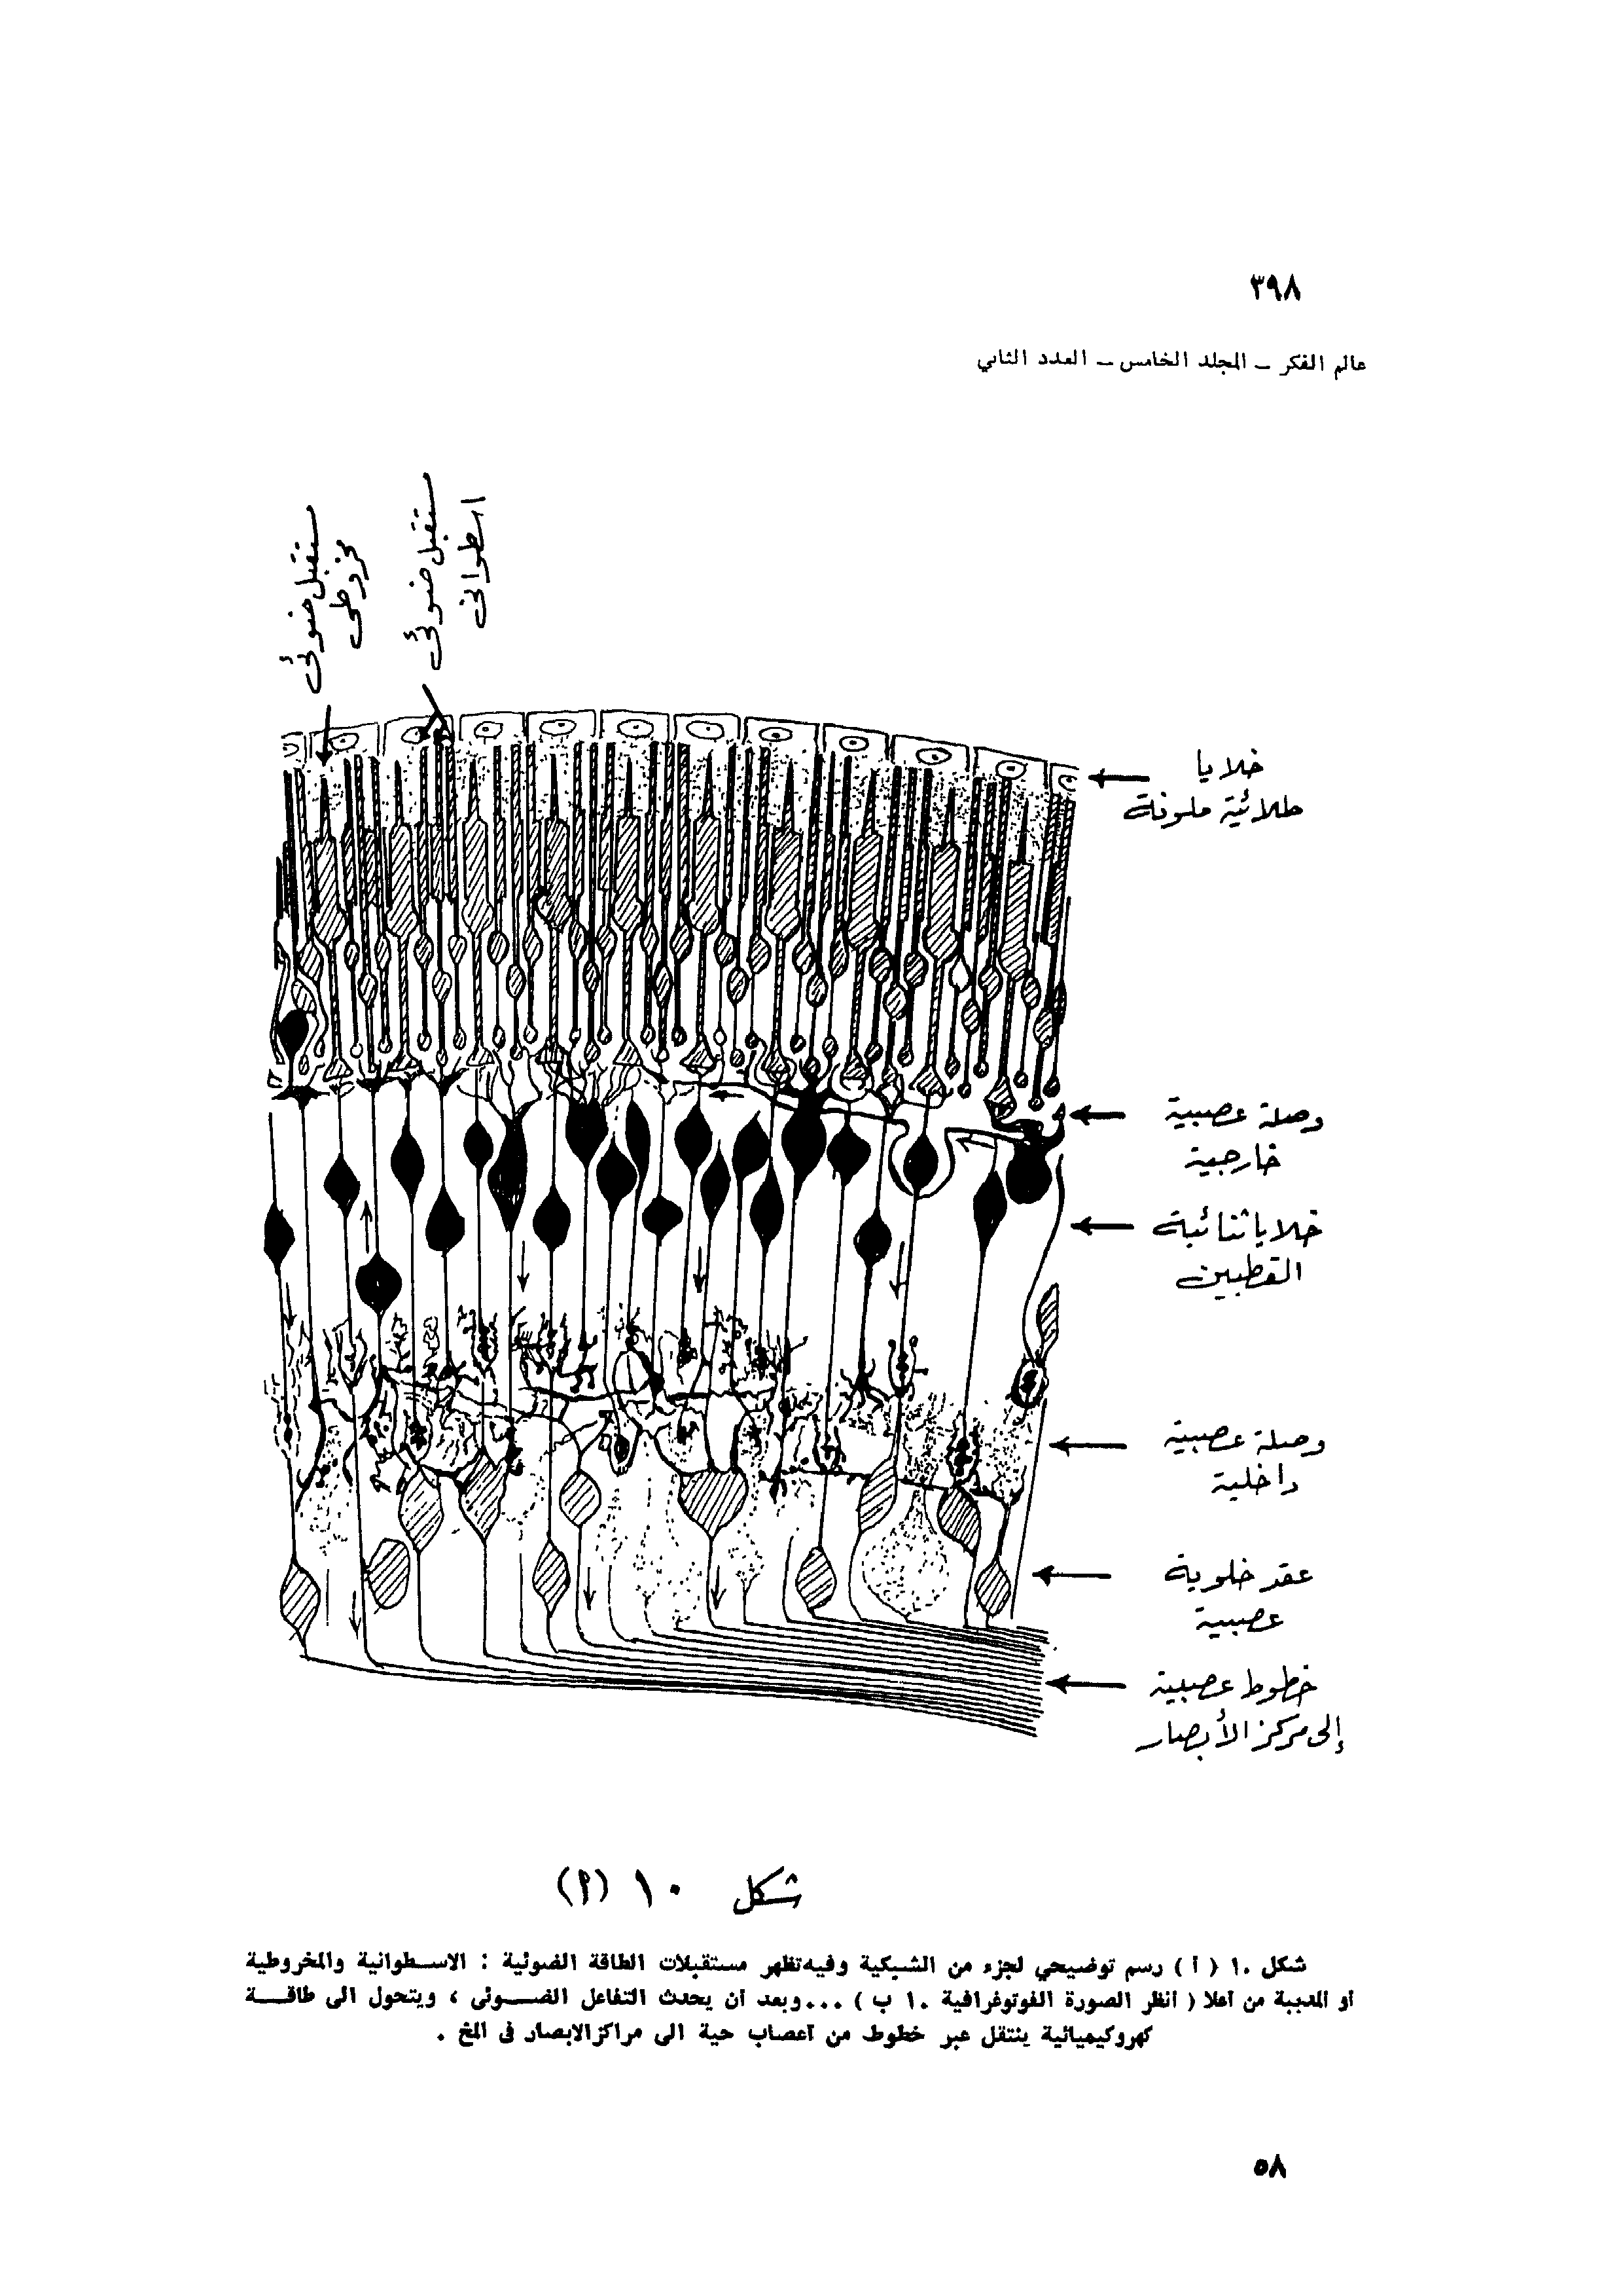 ٣٩٨
عالم الفكر ـ المجلد الخامس ـ العدد الثاني
مستقبل ضوئى
مخروطى
مستقبل ضوئى
اسطوانى
خلايا
طلائية ملونة
وصلة عصبية
خارجية
خلايا ثنائية
القطبين
وصلة عصبية
داخلية
عقد خلوية
عصبية
خطوط عصبية
إلى مركز الأبصار
شكل ١٠ (أ)
شكل ١٠ ( أ ) رسم توضيحي لجزء من الشبكية وفيه تظهر مستقبلات الطاقة الضوئية : الاسطوانية والمخروطية
أو المدببة من أعلا ( انظر الصورة الفوتوغرافية ١٠ ب ) ... وبعد أن يحدث التفاعل الضوئى ، ويتحول الى طاقة
كهروكيميائية ينتقل عبر خطوط من أعصاب حية الى مراكز الابصار فى المخ .
٥٨